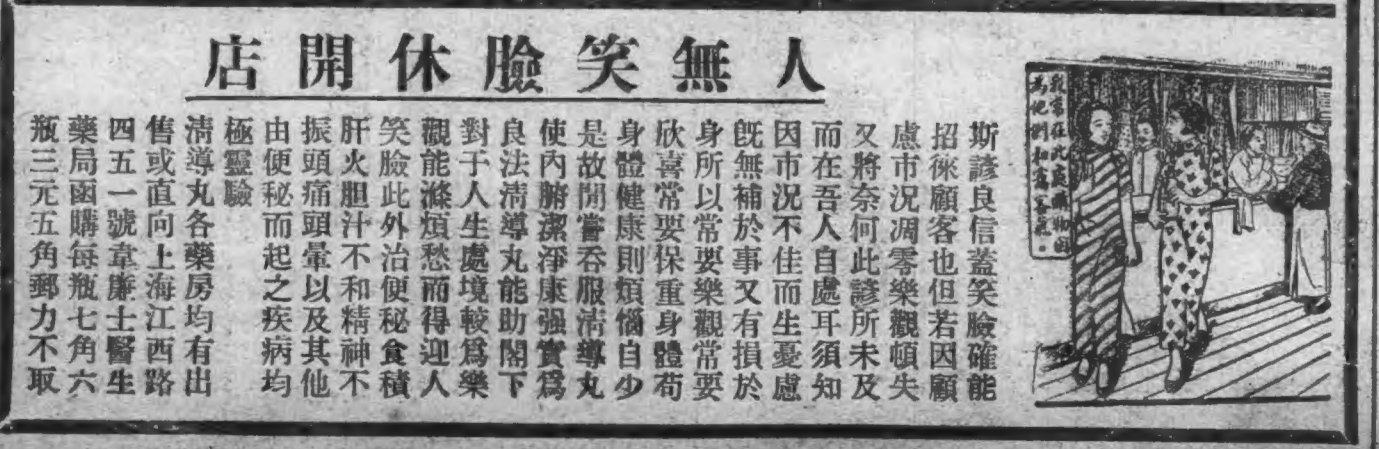 人無笑臉休開店
我常在此處購物因
為他們和靄喜氣。
斯諺良信蓋笑臉確能
招徠顧客也但若因顧
慮市況凋零樂觀頓失
又將奈何此諺所未及
而在吾人自處耳須知
因市況不佳而生憂慮
旣無補於事又有損於
身所以常要樂觀常要
欣喜常要保重身體苟
身體健康則煩惱自少
是故閒嘗吞服清導丸
使內腑潔淨康强實爲
良法清導丸能助閣下
對于人生處境較爲樂
觀能滌煩愁而得迎人
笑臉此外治便秘食積
肝火胆汁不和精神不
振頭痛頭暈以及其他
由便秘而起之疾病均
極靈驗
清導丸各藥房均有出
售或直向上海江西路
四五一號韋廉士醫生
藥局函購每瓶七角六
瓶三元五角郵力不取